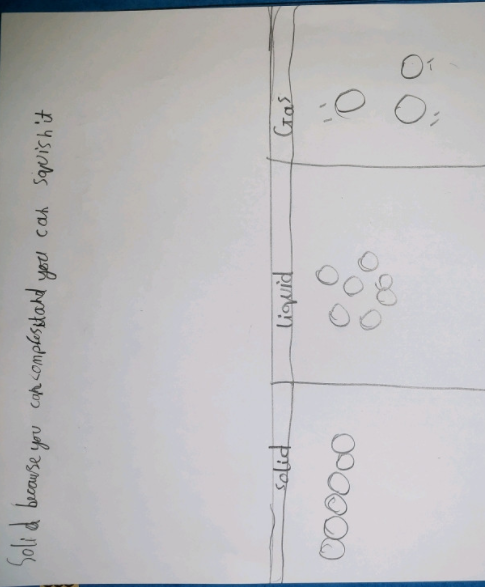 Solid because you can compress it and you can squish it
solid liquid Gas